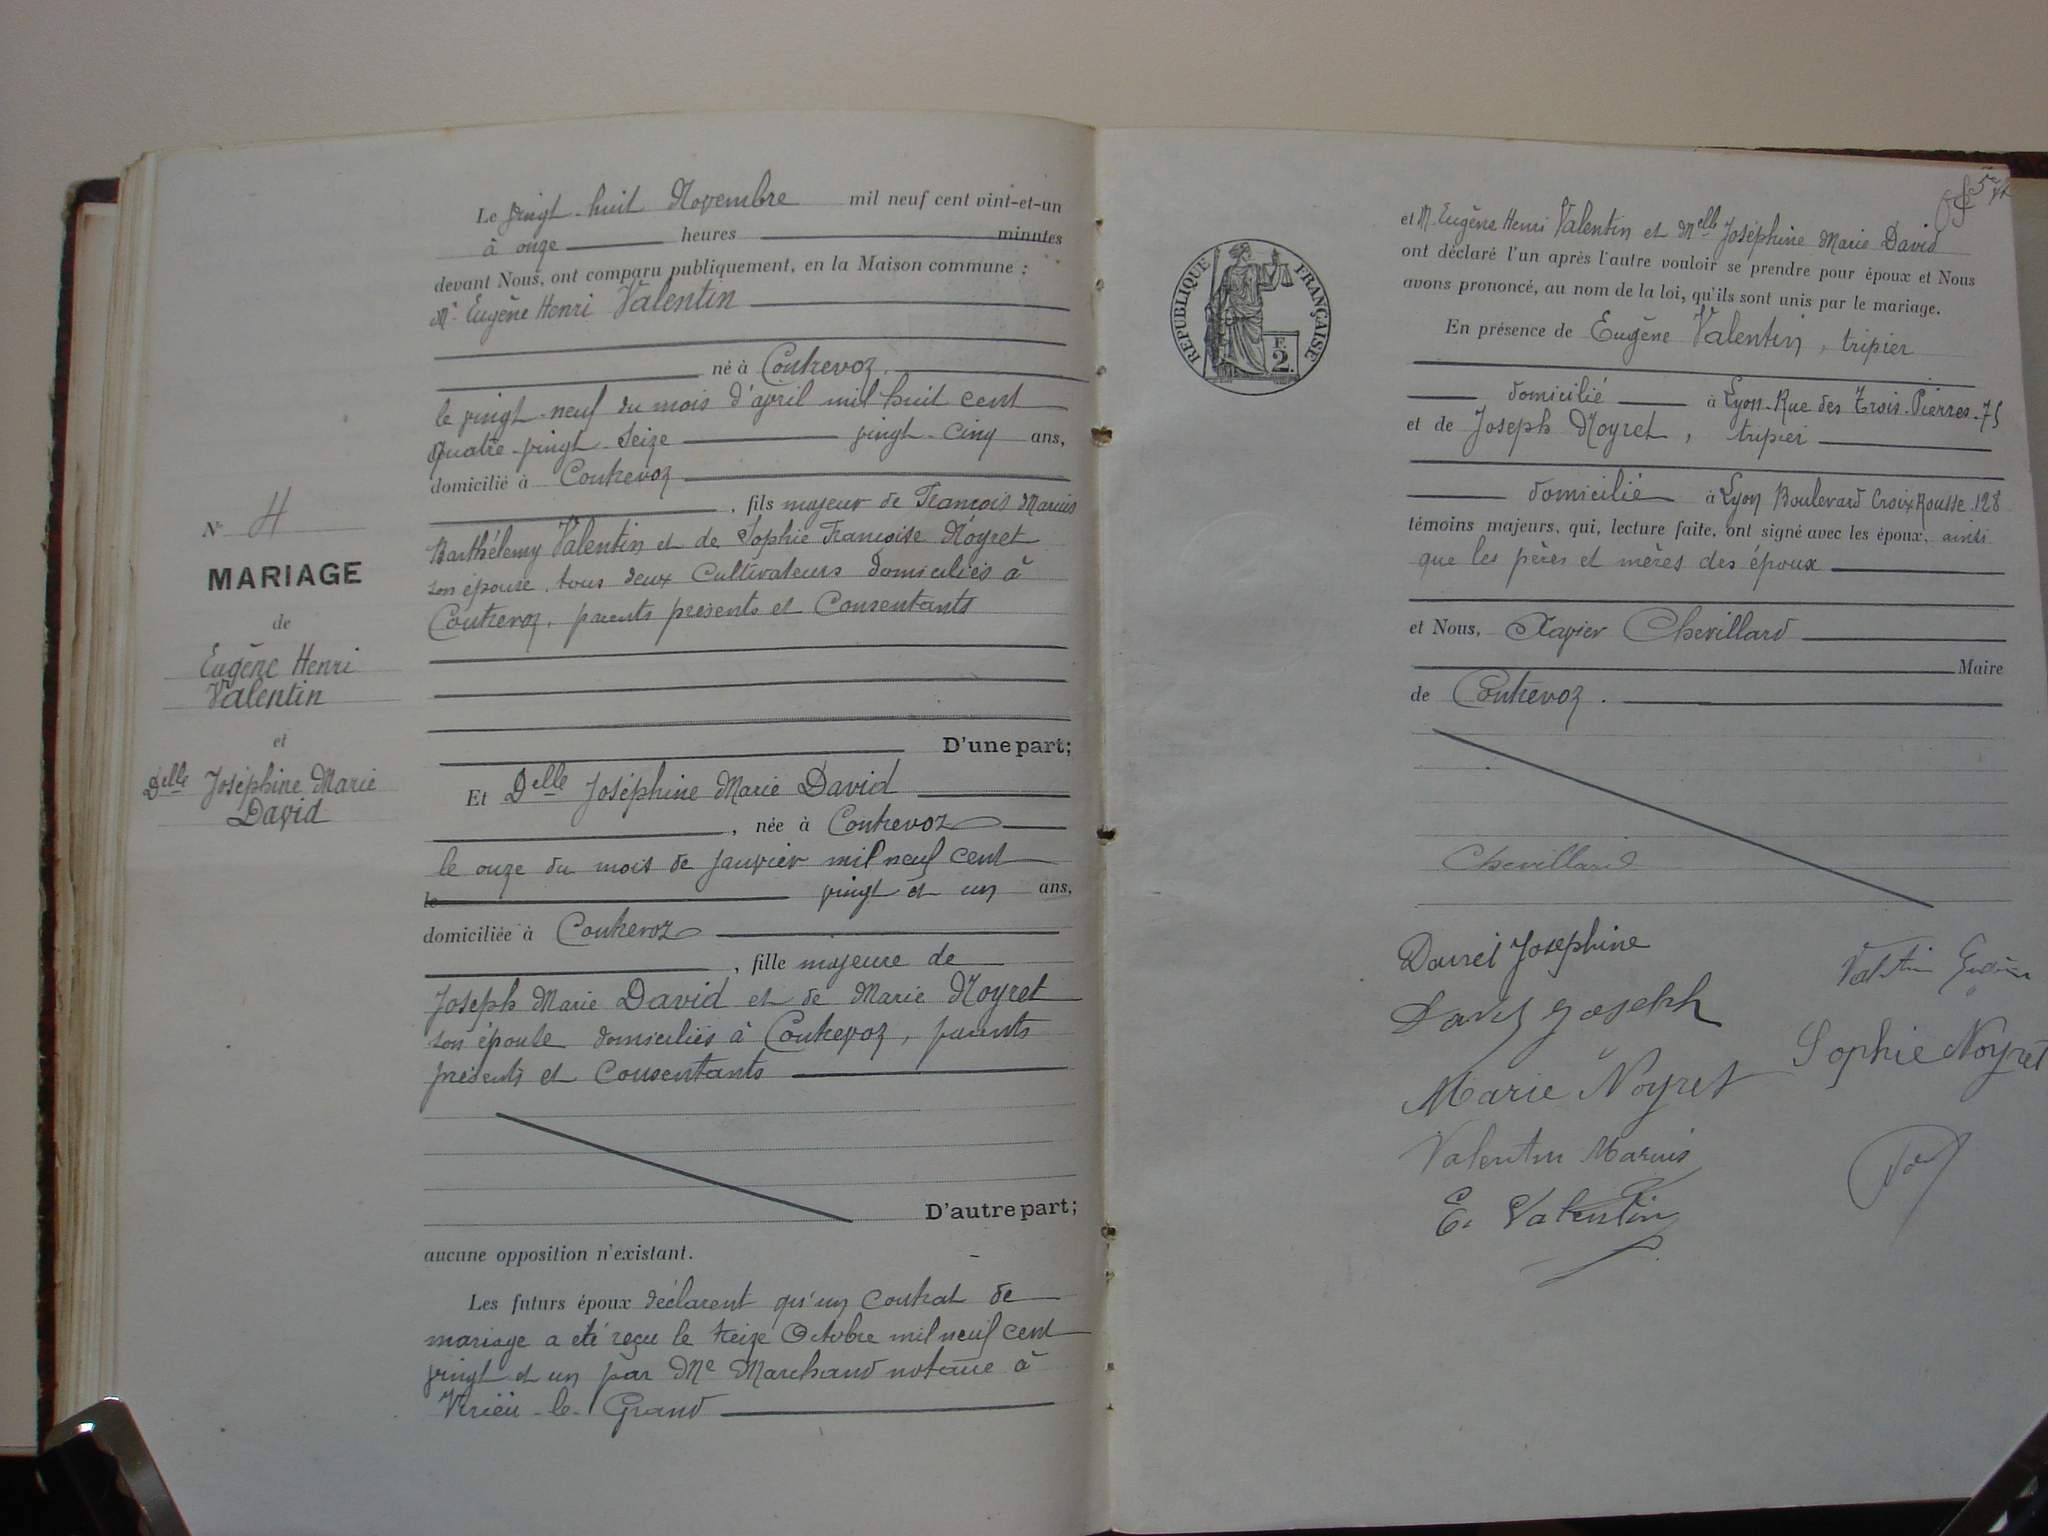 Nº 4
MARIAGE
de
Eugène Henri
Valentin
et
Delle Joséphine Marie
David
Le vingt-huit Novembre mil neuf cent vint-et-un
à onze heures minutes
devant Nous, ont comparu publiquement, en la Maison commune :
Mr Eugène Henri Valentin
né à Contrevoz
le vingt-neuf du mois d'avril mil huit cent
quatre-vingt-seize vingt-cinq ans,
domicilié à Contrevoz
, fils majeur de François Marius
Barthélemy Valentin et de Sophie Françoise Noyret
son épouse, tous deux Cultivateurs domiciliés à
Contrevoz, parents présents et Consentants
D'une part;
Et Delle Joséphine Marie David
, née à Contrevoz
le onze du mois de janvier mil neuf cent
le vingt et un ans,
domiciliée à Contrevoz
, fille majeure de
Joseph Marie David et de Marie Noyret
son épouse domiciliés à Contrevoz, parents
présents et Consentants
D'autre part;
aucune opposition n'existant.
Les futurs époux déclarent qu'un Contrat de
mariage a été reçu le treize Octobre mil neuf cent
vingt et un par Me Marchand notaire à
Virieu-le-Grand
RÉPUBLIQUE FRANÇAISE
F.
2.
et M. Eugène Henri Valentin et Melle Joséphine Marie David
ont déclaré l'un après l'autre vouloir se prendre pour époux et Nous
avons prononcé, au nom de la loi, qu'ils sont unis par le mariage.
En présence de Eugène Valentin, tripier
domicilié à Lyon-Rue des Trois-Pierres-75
et de Joseph Noyret, tripier
domicilié à Lyon Boulevard Croix Rousse.128
témoins majeurs, qui, lecture faite, ont signé avec les époux, ainsi
que les pères et mères des époux
et Nous, Xavier Chevillard
Maire
de Contrevoz.
Chevillard
David Joséphine
Valentin Eugène
David Joseph
Sophie Noyret
Marie Noyret
Valentin Marius
E. Valentin